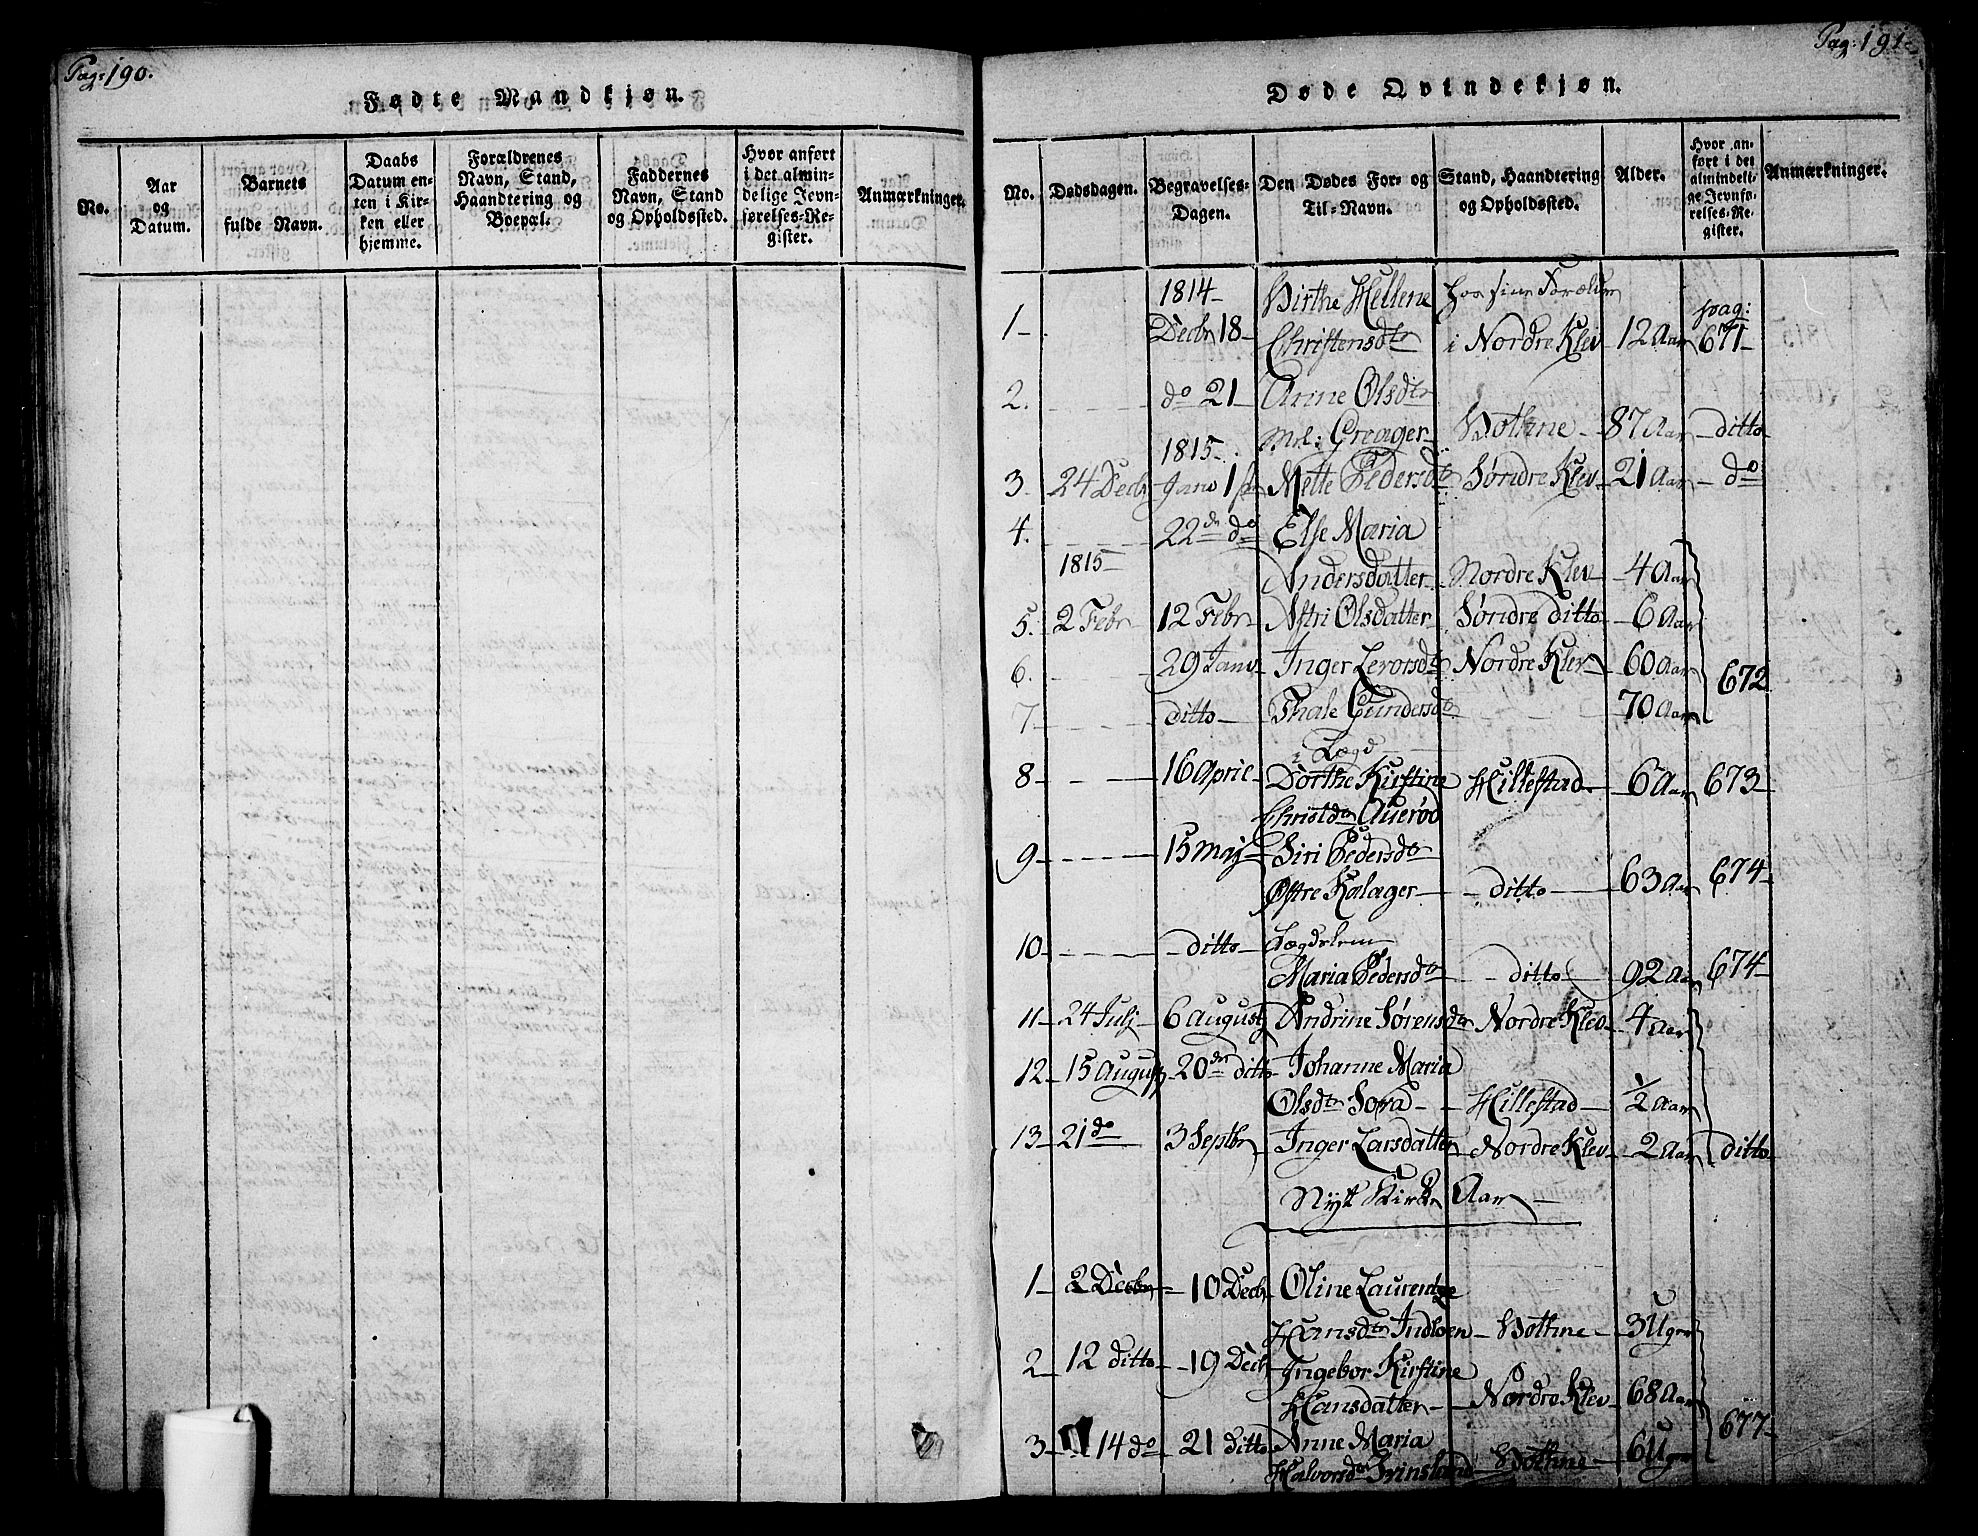 Pag: 190.
Fødte Mandkjøn.
No.
Aar og Datum.
Barnets fulde Navn.
Daabs Datum enten i Kirken eller hjemme.
Forældrenes Navn, Stand, Haandtering og Boepæl.
Faddernes Navn, Stand og Opholdssted.
Hvor anført i det almindelige Jevnførelses-Register.
Anmærkninger.
Pag: 191
Døde Qvindekjøn.
No.
Dødsdagen.
Begravelses-Dagen.
Den Dødes For- og Til-Navn.
Stand, Haandtering og Opholdssted.
Alder.
Hvor anført i det almindelige Jevnførelses-Register.
Anmærkninger.
1814 Birthe Hellene hos sine Forældre pag:
1 Decbr 18 Christensdtr i Nordre Klev 12 Aar 671
2. do 21 Anne Olsdtr
1815 Bothne 87 Aar ditto
3. 24 Decbr Janv 1 Mette Pedersdtr Søndre Klev 21 Aar do
4. 22de do Else Maria
1815 Andersdatter Nordre Klev 4 Aar
5. 2 Febr 12 Febr Astri Olsdatter Søndre ditto 6 Aar
6. 29 Janv Inger Nordre Klev 60 Aar 672
7 ditto Thale Gundersdtr 70 Aar
Lægd
8 16 Aprie Dorthe Kirstine Hillestad 6 Aar 673
Christdtr Auerød
9 15 Maj Siri Pedersdtr
Østre Kalager ditto 63 Aar 674
10 ditto Lægdslem
Maria Pedersdtr ditto 92 Aar 674
11 24 Julj 6 August Andrine Sørensdtr Nordre Klev 4 Aar
12 15 August 20de ditto Johanne Maria
Olsdtr Hillestad 1/2 Aar
13 21 do 3 Septbr Inger Larsdatter Nordre Klev 2 Aar ditto
Nyt Kirke Aar
1 2 Decbr 10 Decbr Oline Laurentze
Hansdtr Indloen Bothne 3 Uger
2 12 ditto 19 Decbr Ingebor Kirstine
Hansdatter Nordre Klev 68 Aar
3 14 do 21 ditto Anne Maria 677
Halvorsdtr Bothne 6 Uger